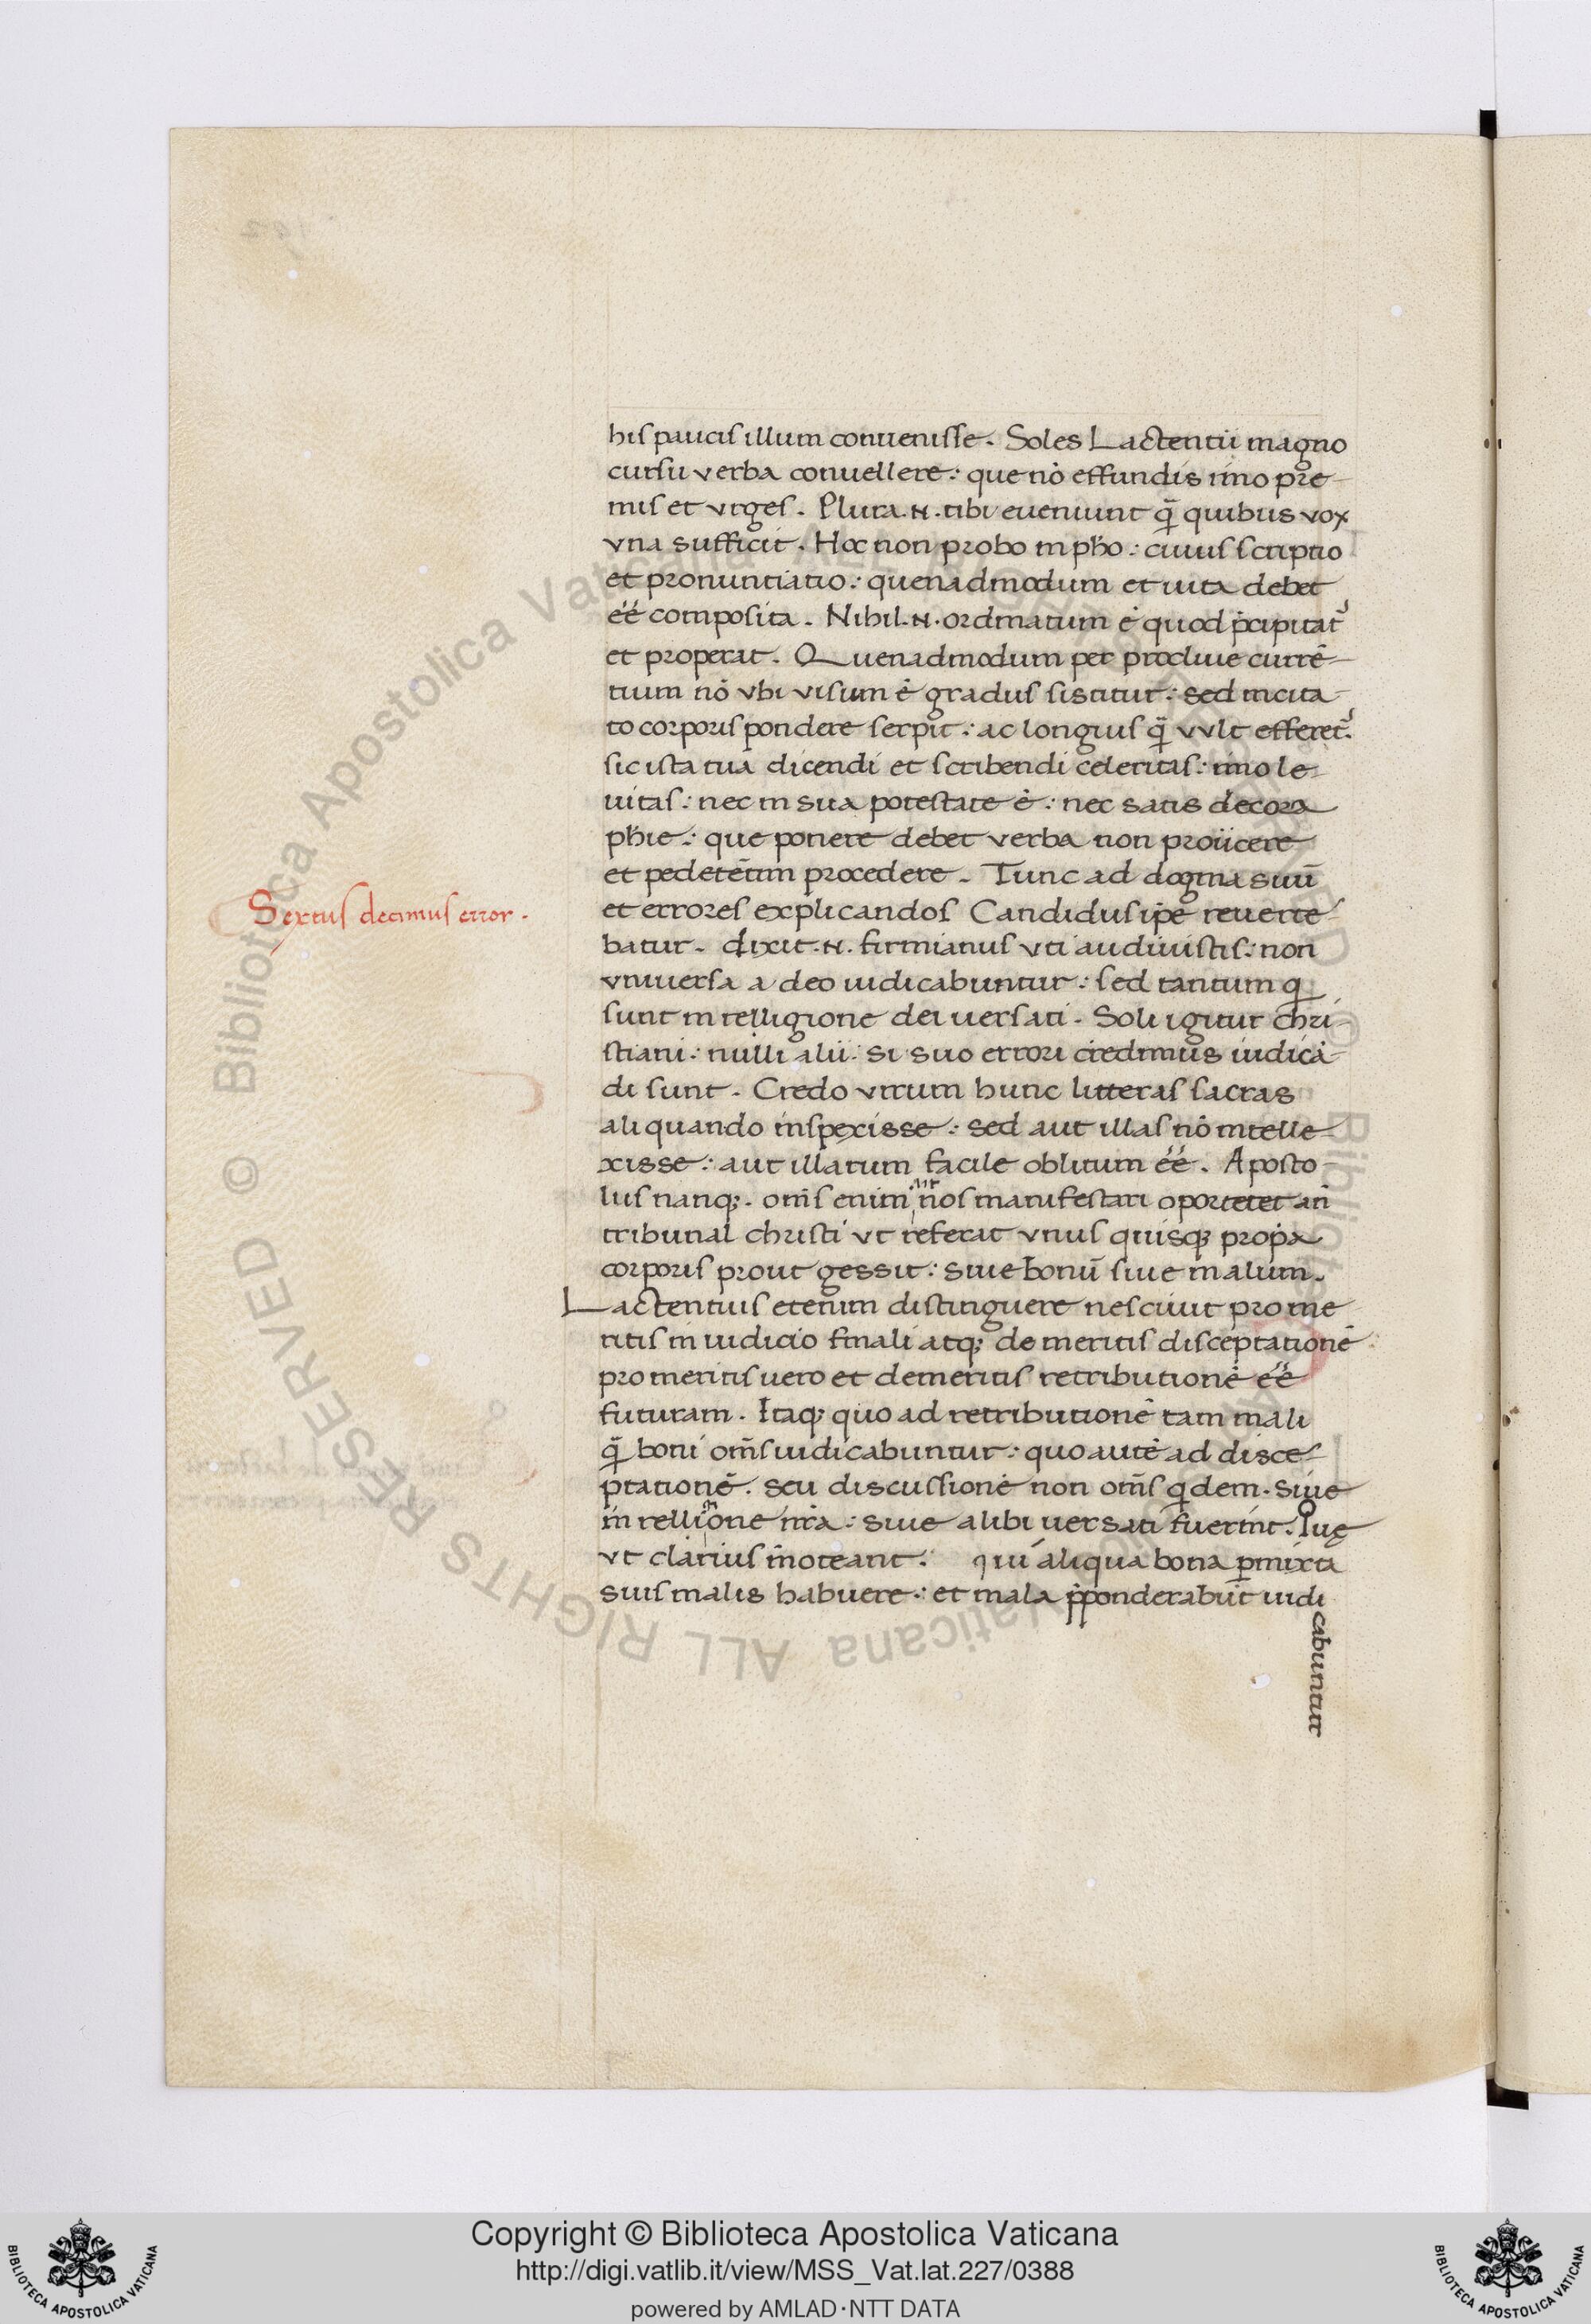 his paucis illum conuenisse. Soles Lactentii magno
cursu verba conuellere: que nō effundis imo pre-
mis et vrges. Plura .N. tibi eueniunt q̄ quibus vox
vna sufficit. Hoc non probo in pho: cuius scriptio
et pronuntiatio: quenadmodum et uita debet
éé composita. Nihil .N. ordinatum ē quod p̄cipitat᷑
et properat. Quenadmodum per procliue currē-
tium nō vbi visum ē gradus sistitur: sed incita-
to corporis pondere serpit: ac longius q̄ vvlt efferet᷑.
sic ista tua dicendi et scribendi celeritas: imo le-
uitas: nec in sua potestate ē: nec satis decora
phie: que ponere debet verba non proiicere
et pedetētim procedere. Tunc ad dogma suū
et errores explicandos Candidus ipē reuerte-
Sextus decimus error.
batur. dixit .N. firmianus vti audiuistis: non
vniuersa a deo iudicabuntur: sed tantum q
sunt in relligione dei uersati. Soli igitur chri-
stiani: nulli alii: si suo errori credimus iudicā-
di sunt. Credo virum hunc litteras sacras
aliquando inspexisse: sed aut illas nō intelle-
xisse: aut illarum facile oblitum éé. Aposto-
lus nanq;. oms̄ enim aīt nos manifestari oportetet an̄
tribunal christi vt referat vnus quisq; propa
corporis prout gessit: siue bonū siue malum.
Lactentius etenim distinguere nesciuit pro me-
ritis in iudicio finali atq; de meritis disceptationē
pro meritis uero et demeritis retributionē éé
futuram. Itaq; quo ad retributionē tam mali
q̄ boni oms̄ iudicabuntur: quo autē ad disce-
ptationē. seu discussionē non oms̄ qdem. Siue
in relligione nrā: siue alibi uersati fuerint. Quę
vt clarius inoteant: qui aliqua bona pmixta
suis malis habuere: et mala p̄ponderabūt iudi
cabuntur
Copyright © Biblioteca Apostolica Vaticana
http://digi.vatlib.it/view/MSS_Vat.lat.227/0388
powered by AMLAD·NTT DATA